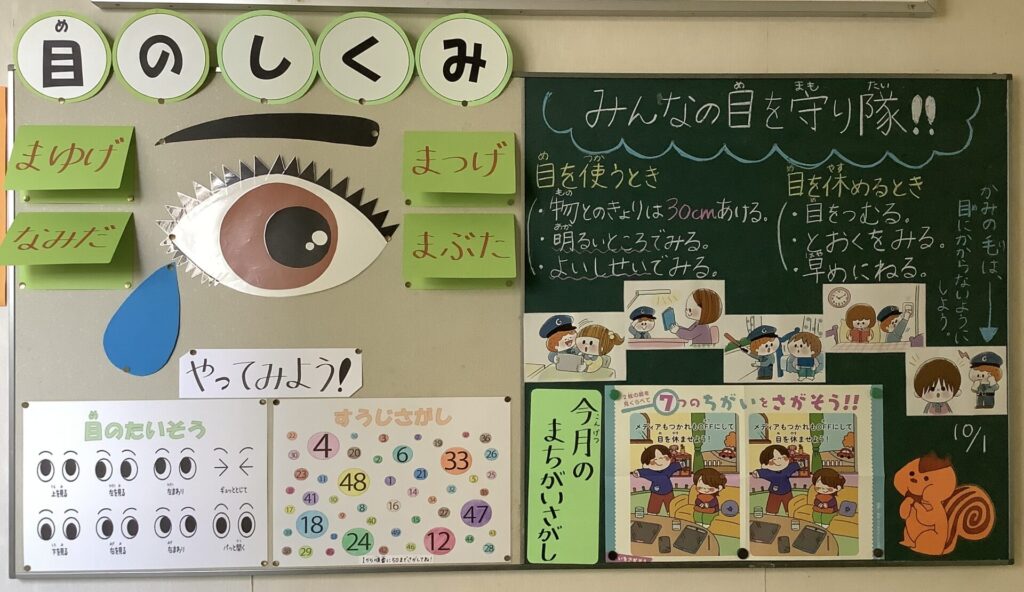 目のしくみ
まゆげ
まつげ
なみだ
まぶた
やってみよう!
目のたいそう
上を見る
左を見る
右まわり
ギュッととじて
下を見る
右を見る
左まわり
パッと開く
すうじさがし
4
6
33
48
47
18
24
12
41
1から順番に50までさがしてね!
みんなの目を守り隊!!
目を使うとき
・物とのきょりは30cmあける。
・明るいところでみる。
・よいしせいでみる。
目を休めるとき
・目をつむる。
・とおくをみる。
・早めにねる。
かみの毛は、
目にかからないように
しよう。
10/1
今月の
まちがいさがし
2枚の絵を
見くらべて
7つのちがいをさがそう!!
メディアもつかれもOFFにして
目を休ませよう!
メディアもつかれもOFFにして
目を休ませよう!